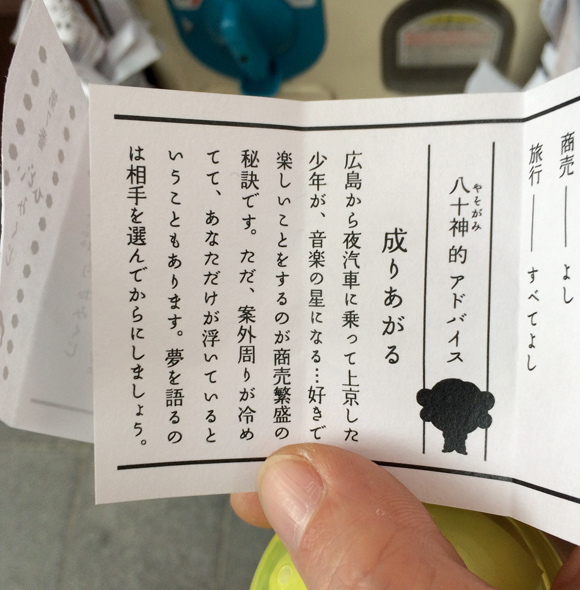 商売──よし
旅行──すべてよし
やそがみ
八十神的アドバイス
成りあがる
広島から夜汽車に乗って上京した
少年が、音楽の星になる…好きで
楽しいことをするのが商売繁盛の
秘訣です。ただ、案外周りが冷め
てて、あなただけが浮いていると
いうこともあります。夢を語るの
は相手を選んでからにしましょう。